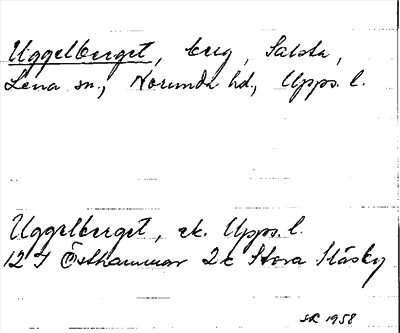 Uggelberget, berg, Salsta,
Lena sn., Norunda hd., Upps. l.
Uggelberget, ek. Upps. l.
12 I Östhammar 2c Stora Måsby
SR 1958